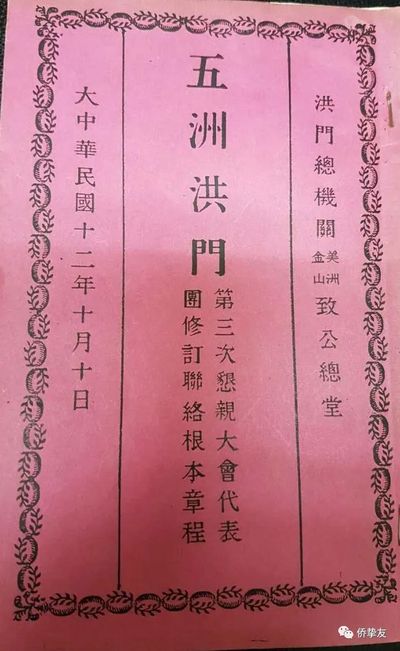 洪門總機關美洲金山致公總堂
五洲洪門
第三次懇親大會代表
團修訂聯絡根本章程
大中華民國十二年十月十日
侨挚友